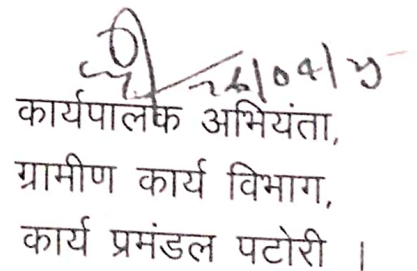 कार्यपालक अभियंता,
ग्रामीण कार्य विभाग,
कार्य प्रमंडल पटोरी ।